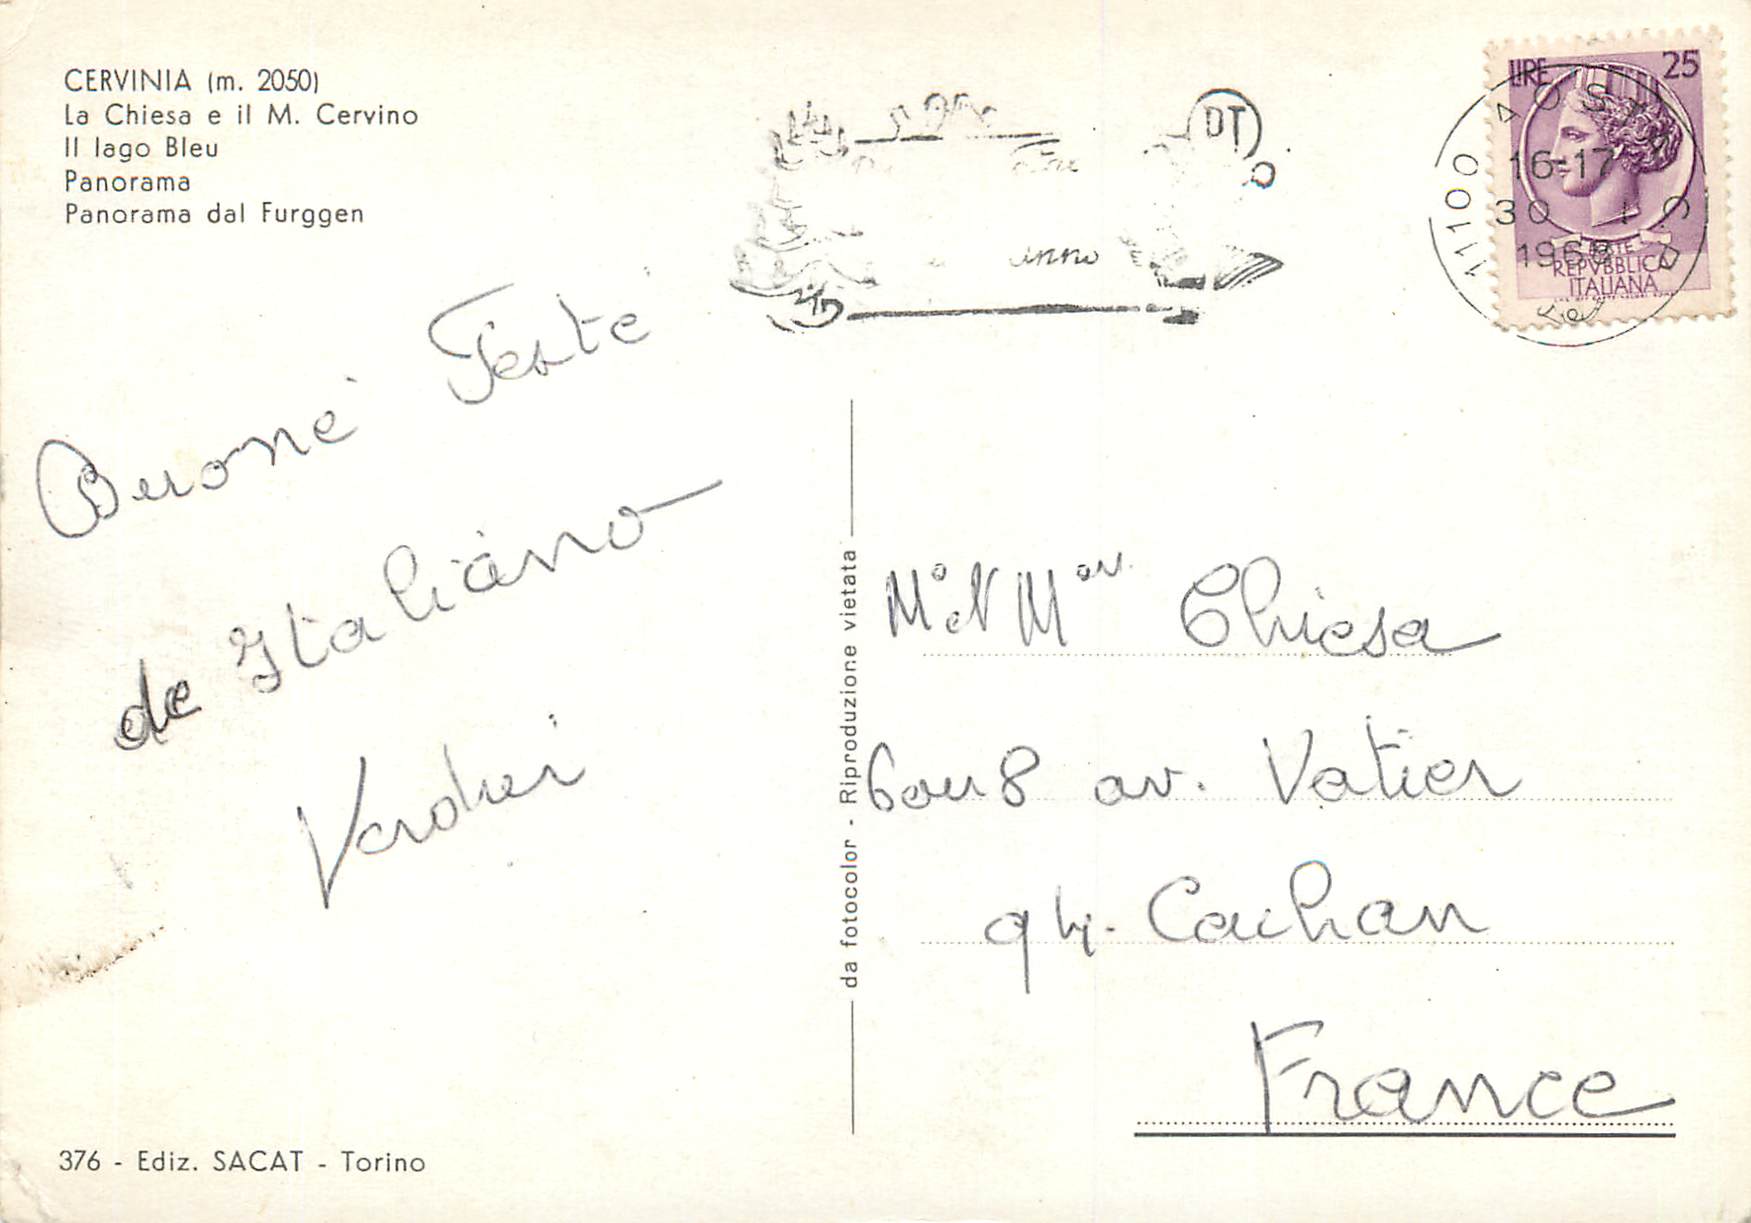 CERVINIA (m. 2050)
La Chiesa e il M. Cervino
Il lago Bleu
Panorama
Panorama dal Furggen
LIRE 25
POSTE
REPVBBLICA
ITALIANA
11100 AOSTA C.P.
16-17
30 1
1968
PT
anno
Buone Feste
de Italiano
da fotocolor - Riproduzione vietata
Chiesa
6 ou 8 av. Vatier
94. Cachan
France
376 - Ediz. SACAT - Torino